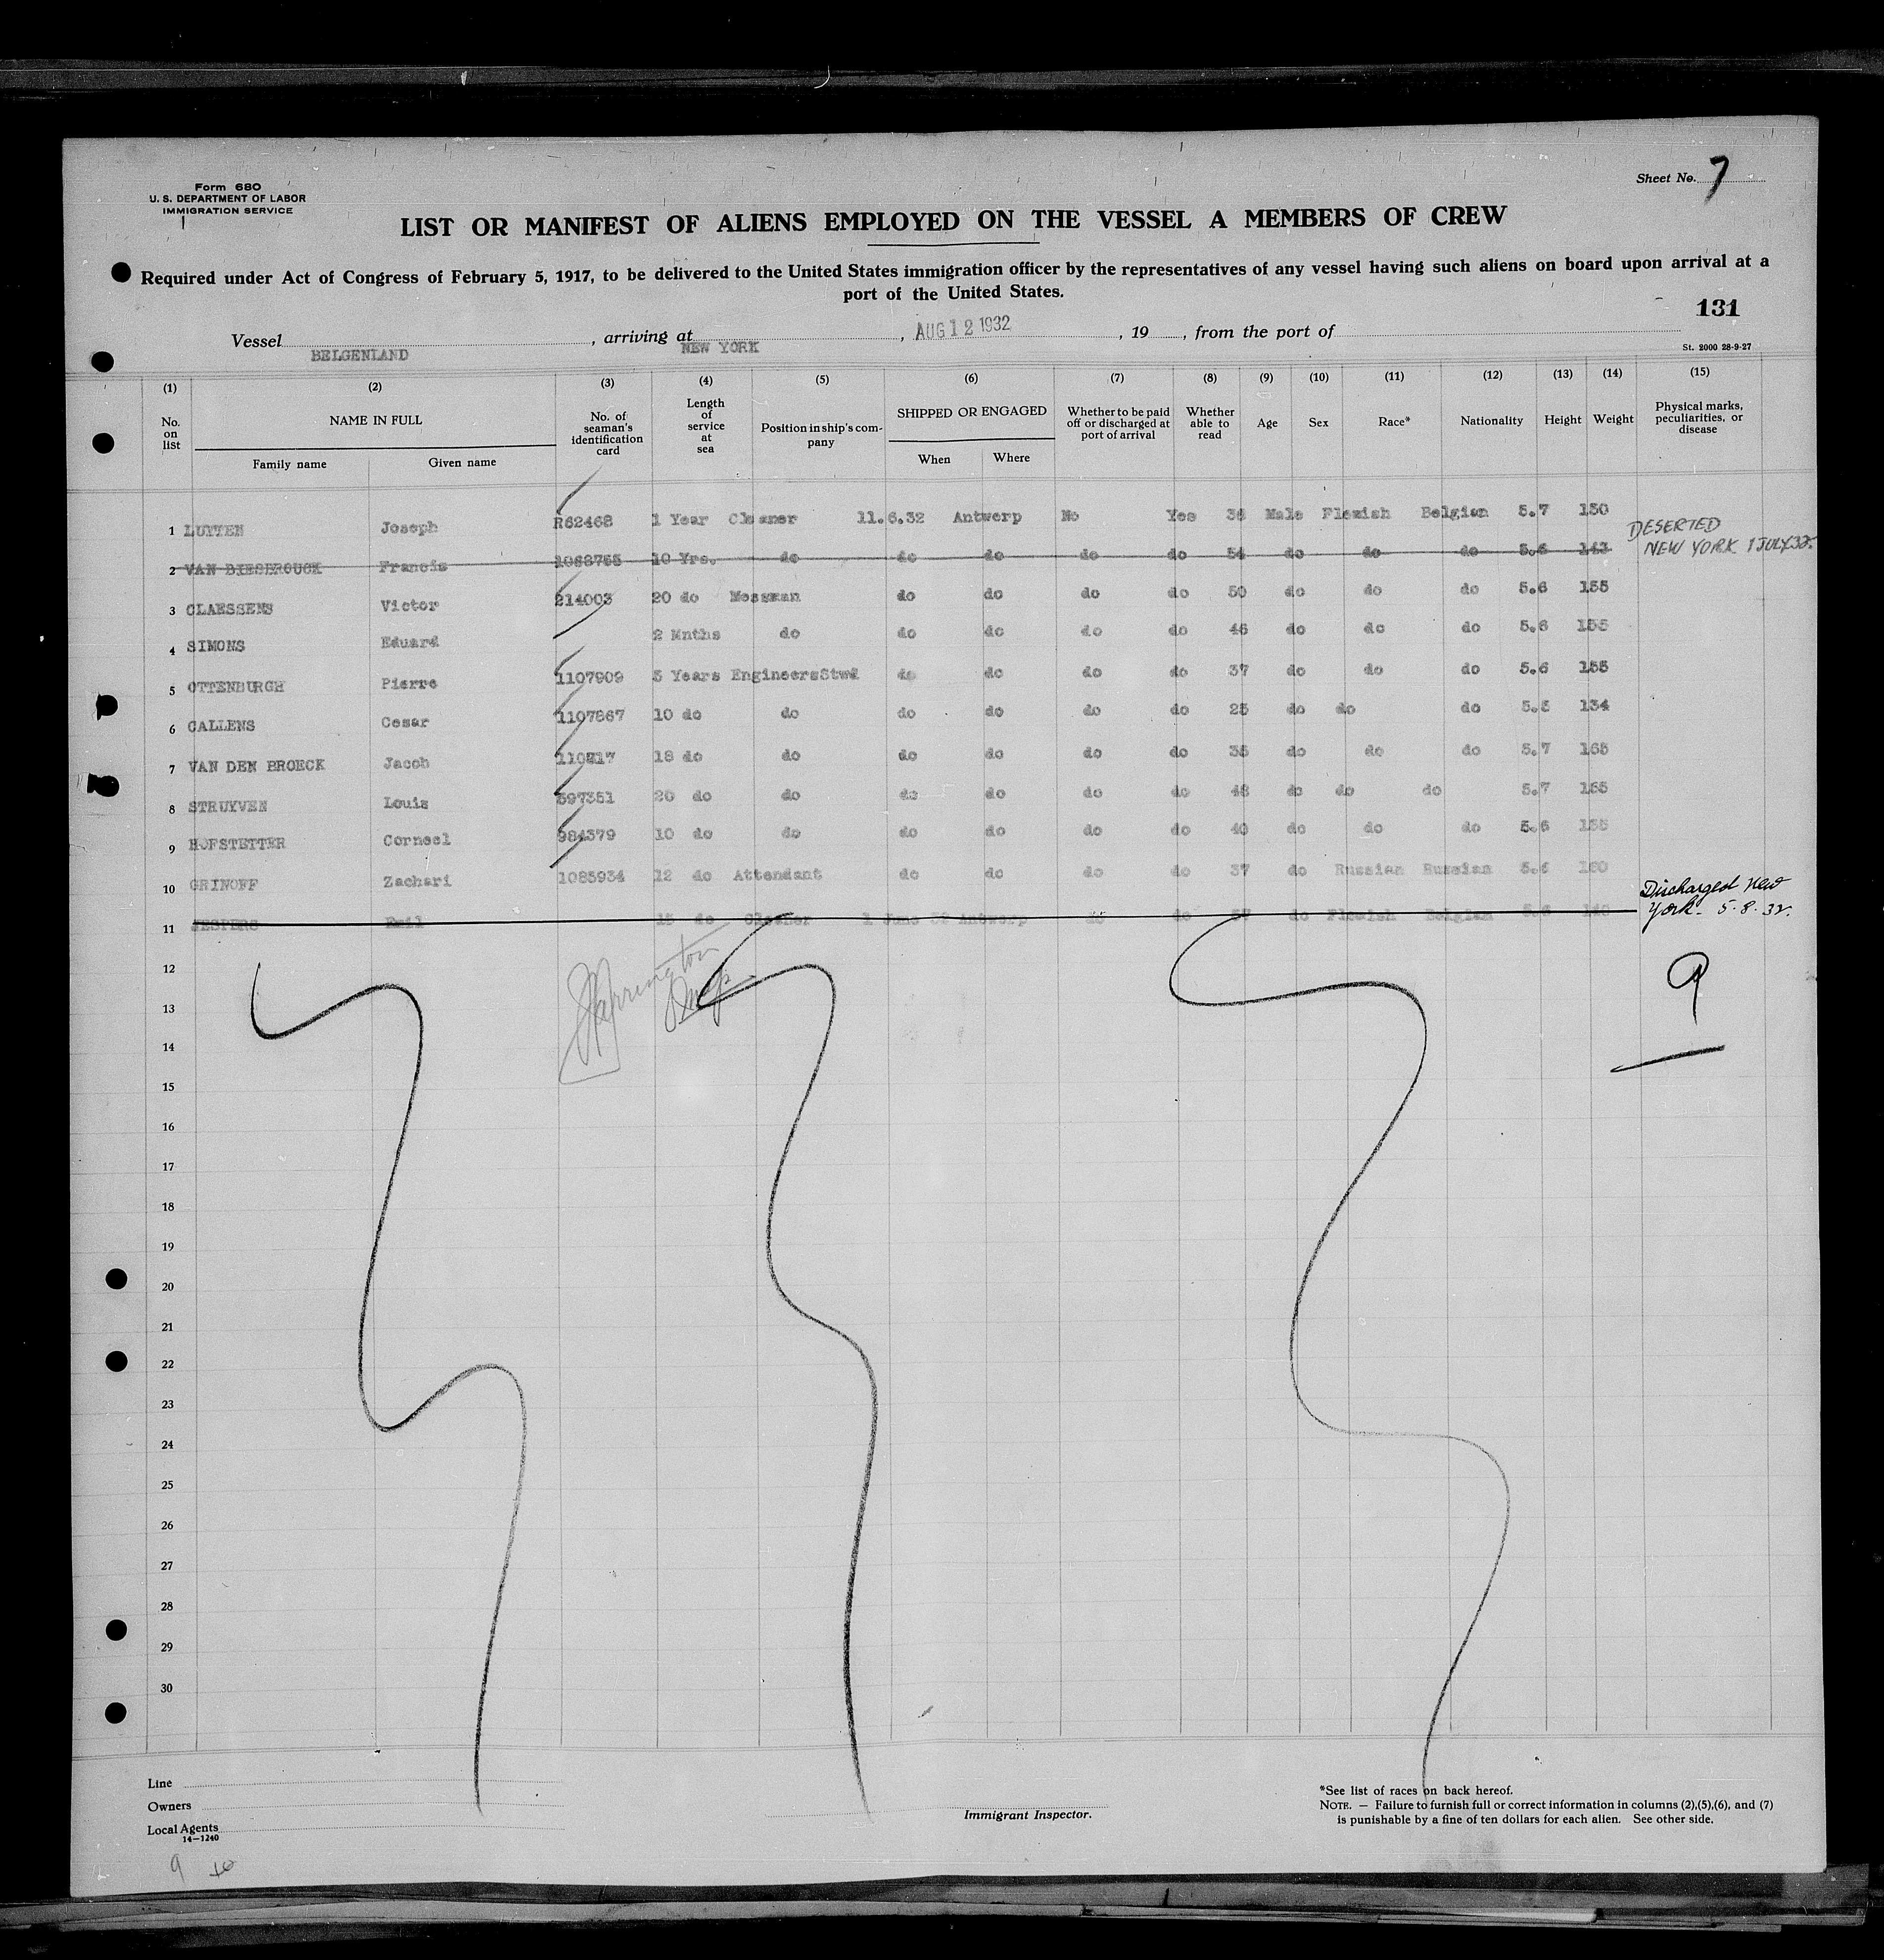 Form 680
U. S. DEPARTMENT OF LABOR
IMMIGRATION SERVICE
Sheet No. 7
LIST OR MANIFEST OF ALIENS EMPLOYED ON THE VESSEL A MEMBERS OF CREW
Required under Act of Congress of February 5, 1917, to be delivered to the United States immigration officer by the representatives of any vessel having such aliens on board upon arrival at a
port of the United States.
131
Vessel BELGENLAND, arriving at NEW YORK, AUG 12 1932, 19, from the port of
St. 2000 28-9-27
(1) (2) (3) (4) (5) (6) (7) (8) (9) (10) (11) (12) (13) (14) (15)
No. on list NAME IN FULL Family name Given name No. of seaman's identification card Length of service at sea Position in ship's company SHIPPED OR ENGAGED When Where Whether to be paid off or discharged at port of arrival Whether able to read Age Sex Race* Nationality Height Weight Physical marks, peculiarities, or disease
1 LUTTEN Joseph R62468 1 Year Cleaner 11.6.32 Antwerp No Yes 36 Male Flemish Belgian 5.7 150
2 VAN BIESBROUCK Francis 1068755 10 Yrs. do do do do do 54 do do do 5.6 143 DESERTED NEW YORK 1 JULY 32.
3 CLAESSENS Victor 214003 20 do Messman do do do do 50 do do do 5.6 155
4 SIMONS Eduard 2 Mnths do do do do do 46 do do do 5.6 155
5 OTTENBURGH Pierre 1107909 5 Years EngineersStwd do do do do 37 do do do 5.6 155
6 CALLENS Cesar 1107867 10 do do do do do do 25 do do do 5.5 134
7 VAN DEN BROECK Jacob 18 do do do do do do 35 do do do 5.7 165
8 STRUYVEN Louis 597351 20 do do do do do do 48 do do do 5.7 165
9 HOFSTETTER Corneel 984379 10 do do do do do do 40 do do do 5.6 155
10 GRINOFF Zachari 1085934 12 do Attendant do do do do 37 do Russian Russian 5.6 160
11 JESPERS Emil 15 do Cleaner 1 June 32 Antwerp do do 57 do Flemish Belgian 5.6 140 Discharged New York. 5.8.32.
12
13
14
15
16
17
18
19
20
21
22
23
24
25
26
27
28
29
30
Harrington
9
Line
Owners
Local Agents
14-1240
Immigrant Inspector.
*See list of races on back hereof.
NOTE. — Failure to furnish full or correct information in columns (2),(5),(6), and (7)
is punishable by a fine of ten dollars for each alien. See other side.
9 to